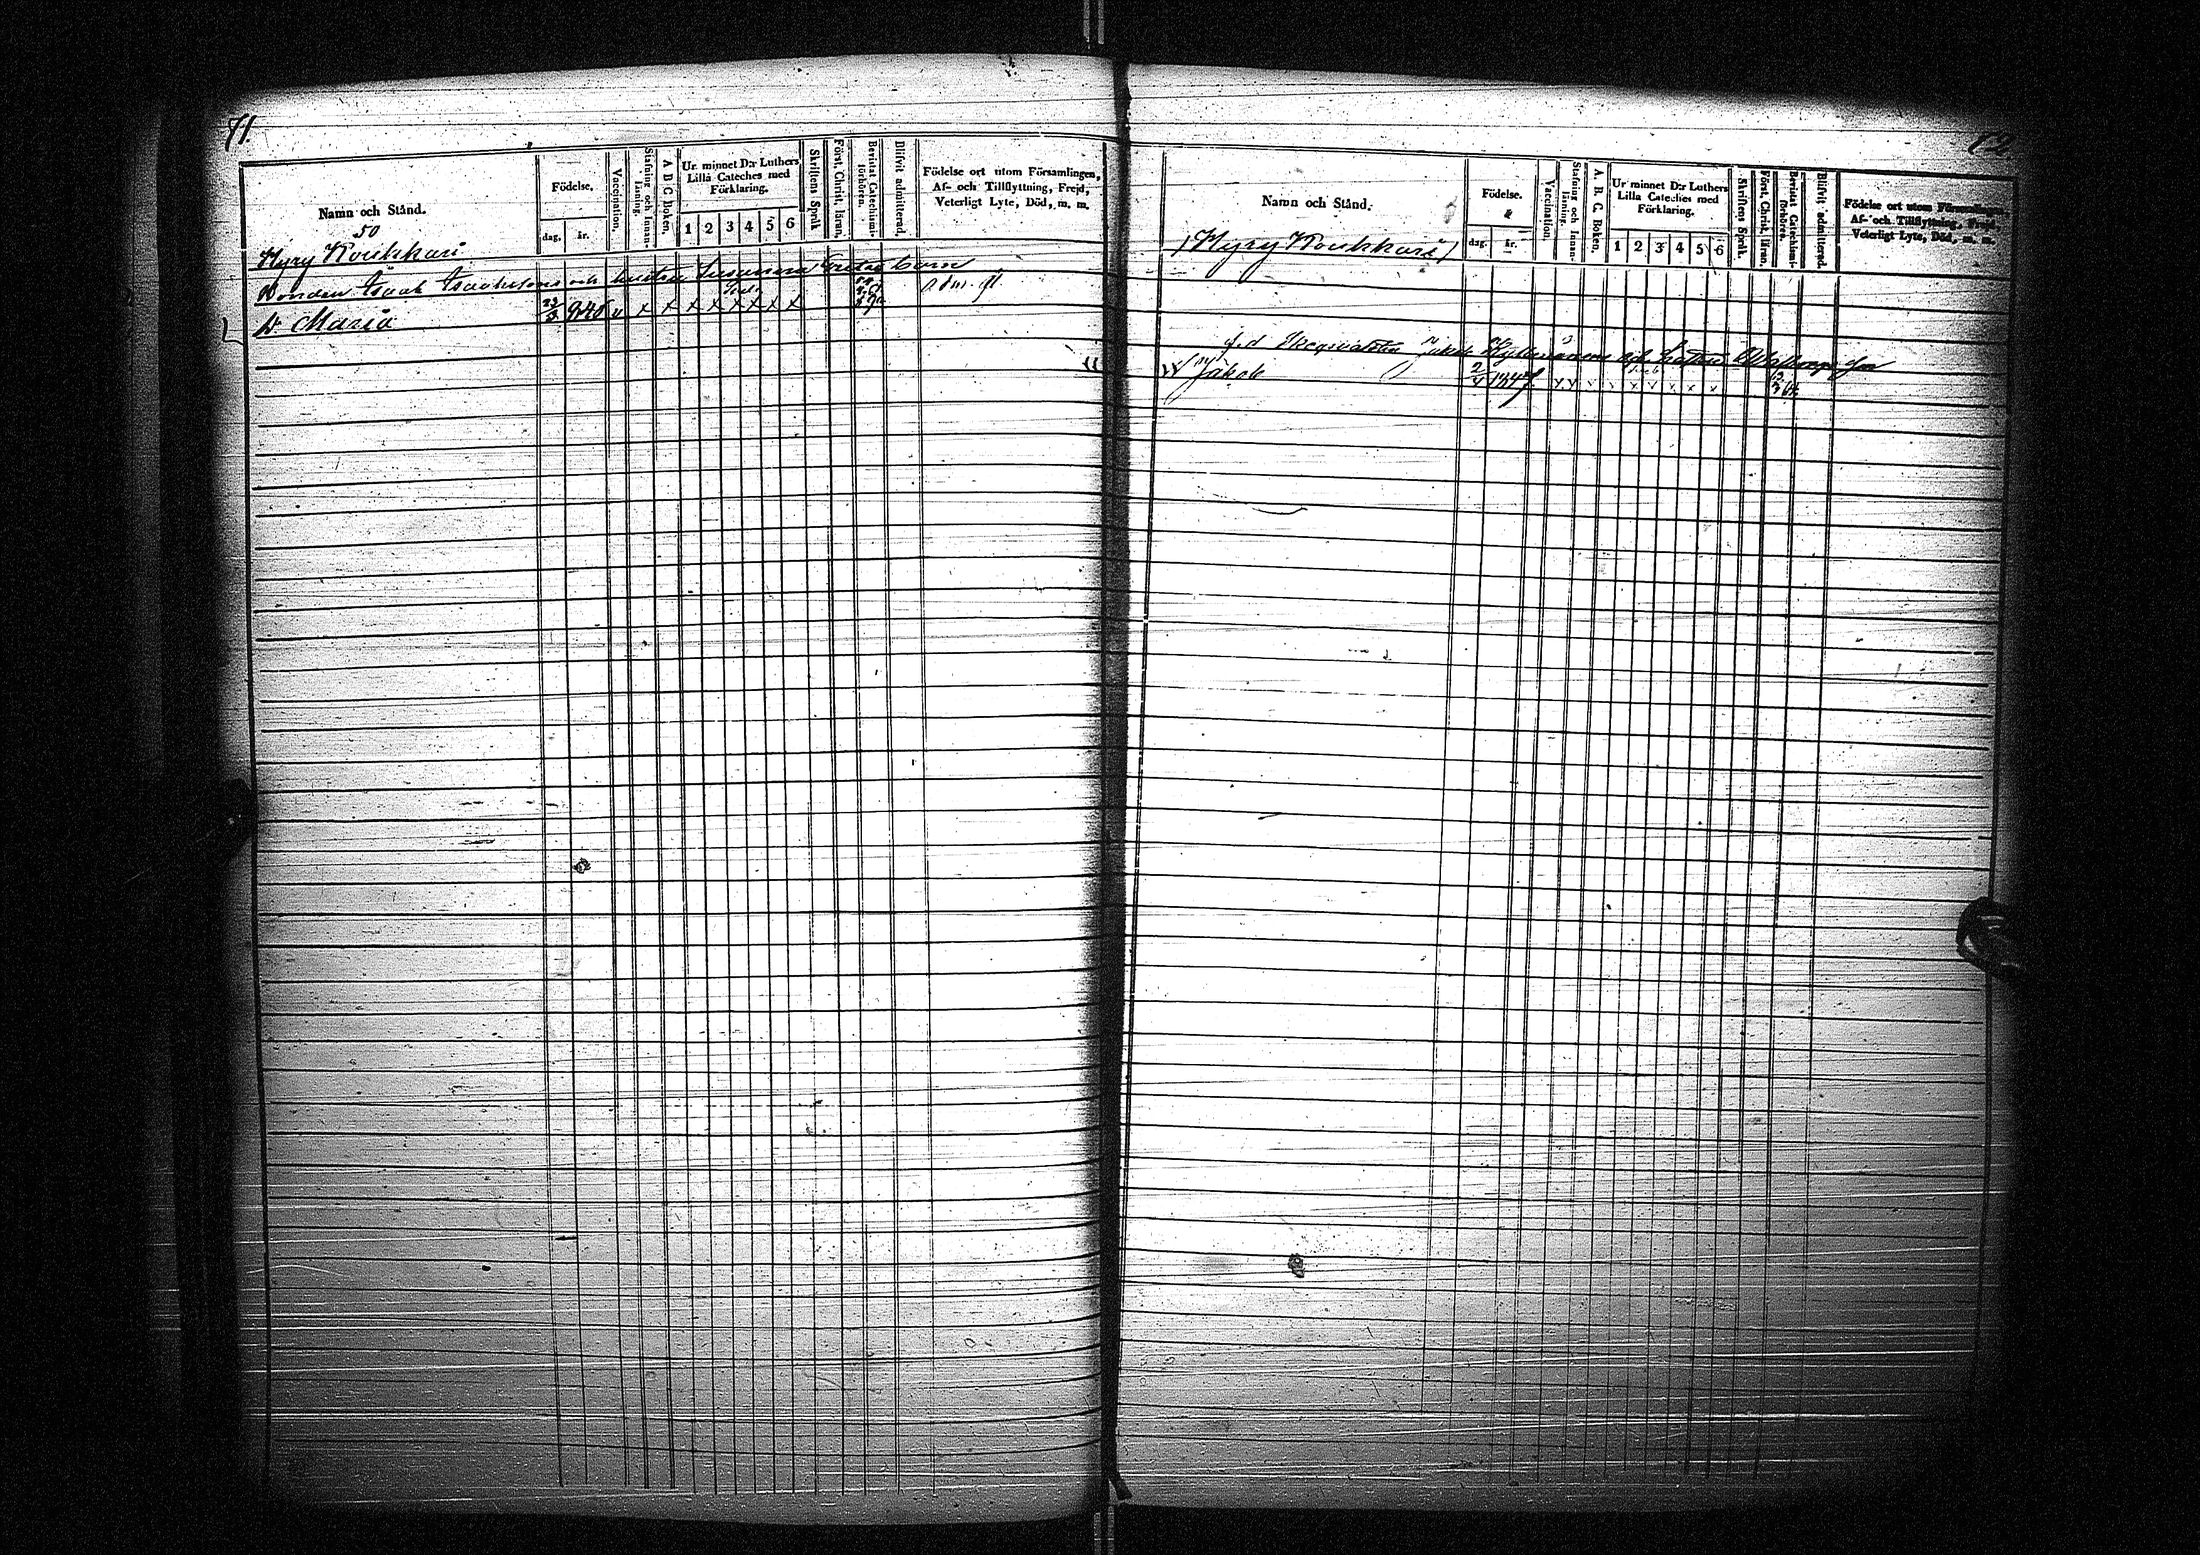 71.
Namn och Stånd.
Födelse.
dag.
år.
Vaccination.
Stafning och Innan-läsning.
A B C Boken.
Ur minnet D:r Luthers Lilla Cateches med Förklaring.
1 2 3 4 5 6
Skriftens Språk
Först. Christ. läran.
Bevistat Catechismi-förhören.
Blifvit admitterad.
Födelse ort utom Församlingen,
Af- och Tillflyttning, Frejd,
Veterligt Lyte, Död, m. m.
50
Hyry Koukkari
Bonden Isaak Isaaksson och hustru Susanna barn
D. Maria 23/3 x x x x x x x x
72.
Namn och Stånd.
Födelse.
dag.
år.
Vaccination.
Stafning och Innan-läsning.
A. B. C. Boken.
Ur minnet D:r Luthers Lilla Cateches med Förklaring.
1 2 3 4 5 6
Skriftens Språk.
Först. Christ. läran.
Bevistat Catechismi-förhören.
Blifvit admitterad.
Födelse ort utom Församlingen,
Af- och Tillflyttning, Frejd,
Veterligt Lyte, Död, m. m.
/Hyry Koukkari/
f.d Jakob
Jakob 1847